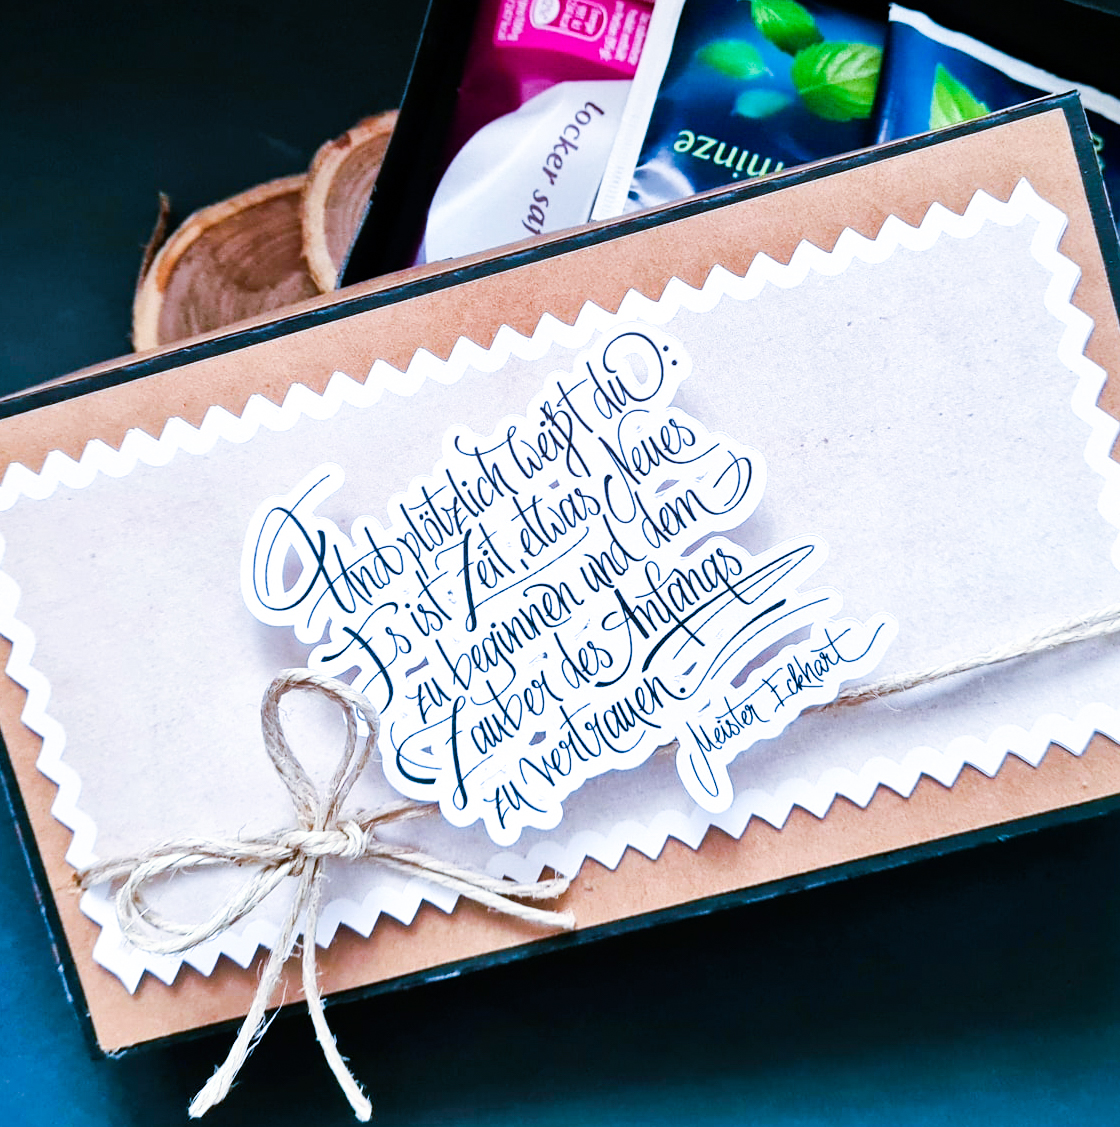 locker
minze
Und plötzlich weißt du:
Es ist Zeit, etwas Neues
zu beginnen und dem
Zauber des Anfangs
zu vertrauen.
Meister Eckhart